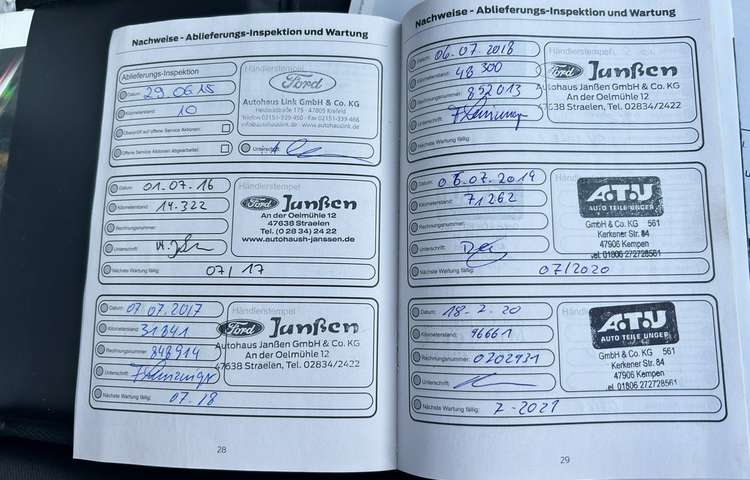 Nachweise - Ablieferungs-Inspektion und Wartung
Ablieferungs-Inspektion
Datum: 29.06.15
Kilometerstand: 10
Überprüft auf offene Service Aktionen:
Offene Service Aktionen Abgearbeitet:
Unterschrift:
Händlerstempel
Ford
Autohaus Link GmbH & Co. KG
Heideckstraße 179 - 47805 Krefeld
Telefon 02151-339 450 - Fax 02151-339 466
info@autohauslink.de - www.autohauslink.de
Datum: 01.07.16
Kilometerstand: 14.322
Rechnungsnummer:
Unterschrift:
Nächste Wartung fällig: 07/17
Händlerstempel
Ford Janßen
An der Oelmühle 12
47638 Straelen
Tel. (0 28 34) 24 22
www.autohaush-janssen.de
Datum: 07.07.2017
Kilometerstand: 31841
Rechnungsnummer: 848914
Unterschrift:
Nächste Wartung fällig: 07.18
Händlerstempel
Ford Janßen
Autohaus Janßen GmbH & Co. KG
An der Oelmühle 12
47638 Straelen, Tel. 02834/2422
28
Nachweise - Ablieferungs-Inspektion und Wartung
Datum: 06.07.2018
Kilometerstand: 48300
Rechnungsnummer: 852013
Unterschrift:
Nächste Wartung fällig:
Händlerstempel
Ford Janßen
Autohaus Janßen GmbH & Co. KG
An der Oelmühle 12
47638 Straelen, Tel. 02834/2422
Datum: 08.07.2019
Kilometerstand: 71262
Rechnungsnummer:
Unterschrift:
Nächste Wartung fällig: 07/2020
A.T.U
AUTO TEILE UNGER
GmbH & Co. KG 561
Kerkener Str. 84
47906 Kempen
Tel. 01806 272728561
Datum: 18-7-20
Kilometerstand: 96661
Rechnungsnummer: 0202931
Unterschrift:
Nächste Wartung fällig: 7-2021
A.T.U
AUTO TEILE UNGER
GmbH & Co. KG 561
Kerkener Str. 84
47906 Kempen
Tel. 01806 272728561
29